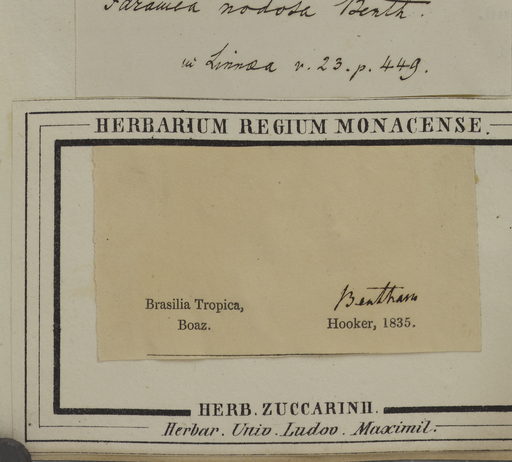 Faramea nodosa Benth.
in Linnæa v. 23. p. 449.
HERBARIUM REGIUM MONACENSE.
Brasilia Tropica,
Boaz.
Bentham
Hooker, 1835.
HERB. ZUCCARINII.
Herbar. Univ. Ludov. Maximil.